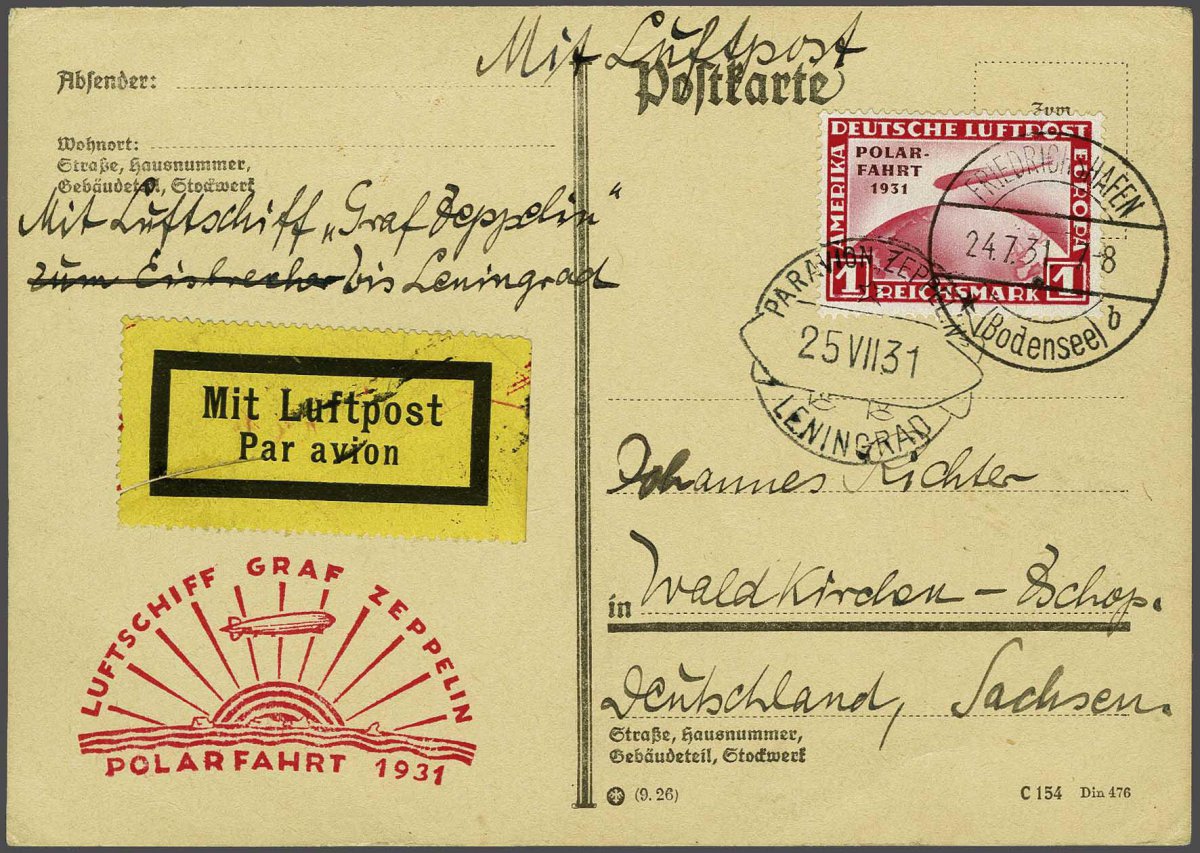 Mit Luftpost
Postkarte
Absender:
Wohnort:
Straße, Hausnummer,
Gebäudeteil, Stockwerk
Mit Luftschiff „Graf Zeppelin“
zum Eisbrecher bis Leningrad
Mit Luftpost
Par avion
LUFTSCHIFF GRAF ZEPPELIN
POLARFAHRT 1931
Zum
DEUTSCHE LUFTPOST
AMERIKA
EUROPA
POLAR-
FAHRT
1931
1 REICHSMARK 1
FRIEDRICHSHAFEN
24.7.31. 7-8
* (Bodensee) b
PAR AVION ZEPPELIN
25 VII 31
LENINGRAD
Johannes Richter
in Waldkirchen – Zschop.
Deutschland, Sachsen.
Straße, Hausnummer,
Gebäudeteil, Stockwerk
(9. 26)
C 154 Din 476